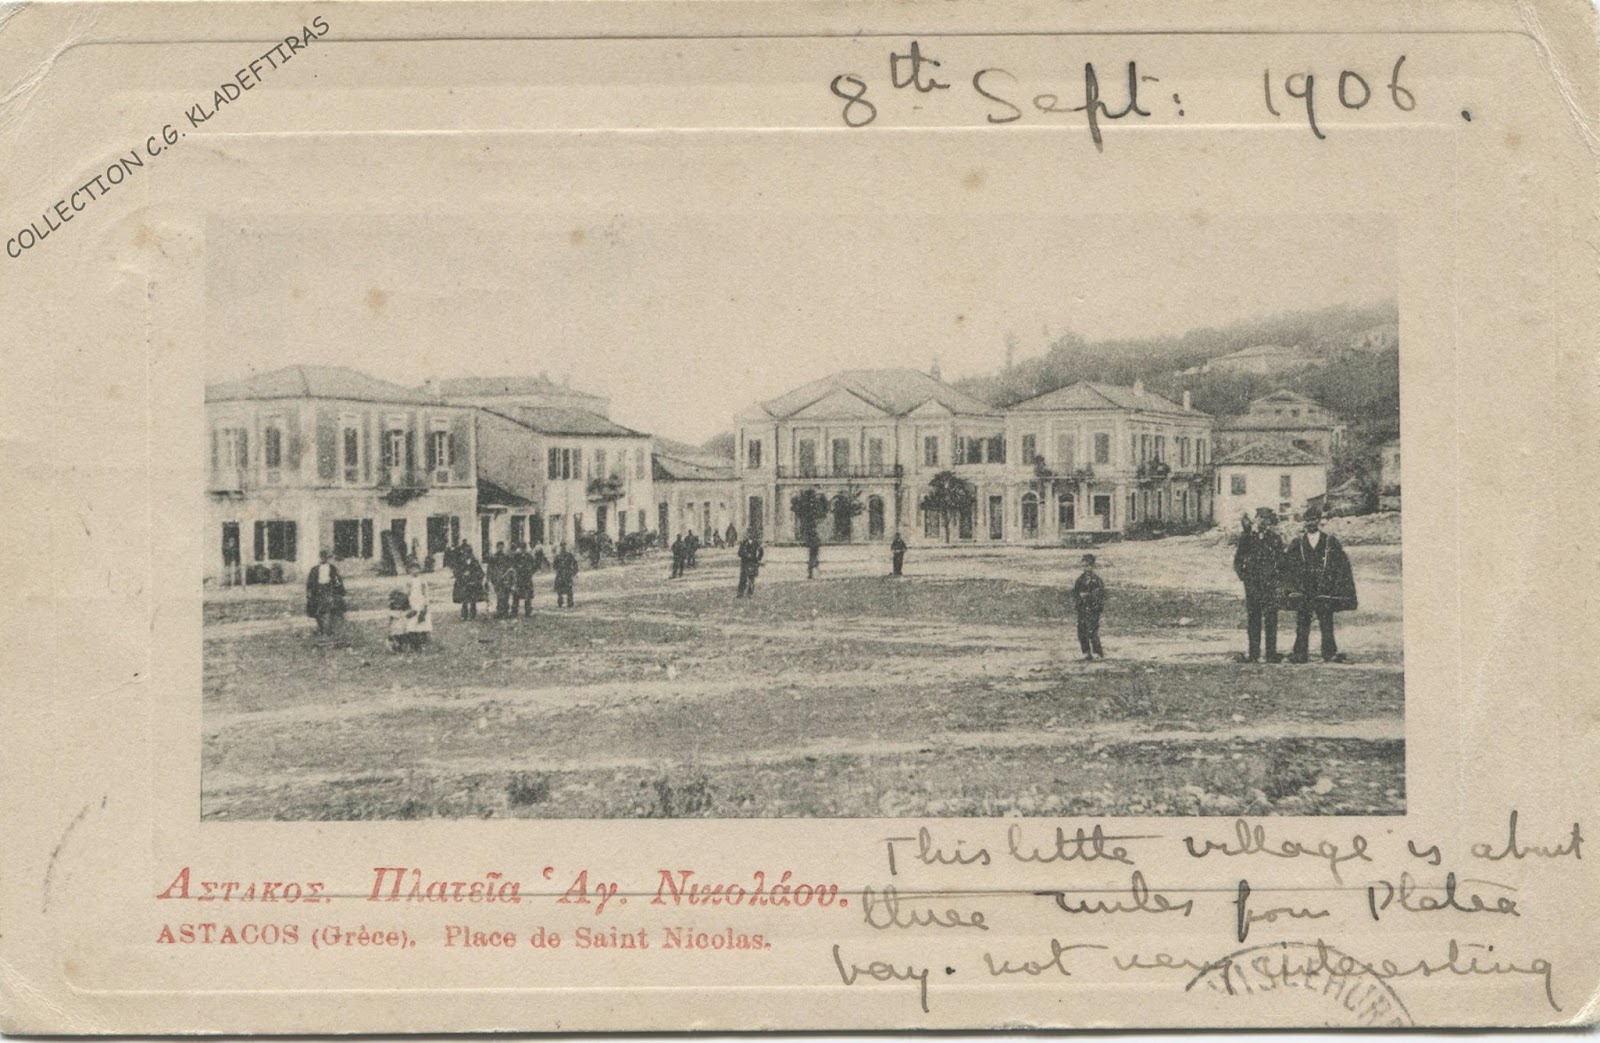 COLLECTION C.G. KLADEFTIRAS
8th Sept: 1906.
Αστακος. Πλατεῖα Ἁγ. Νικολάου.
ASTACOS (Grèce). Place de Saint Nicolas.
This little village is about
three miles from Platea
bay. not very interesting